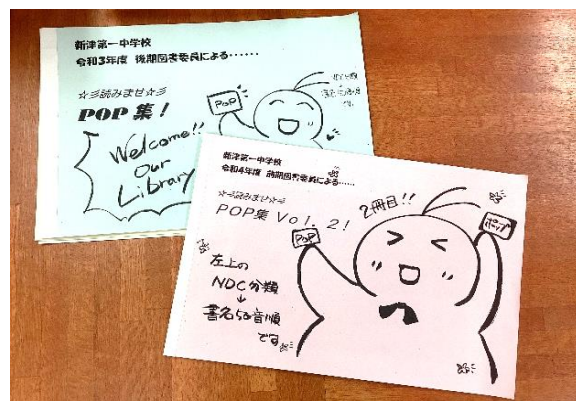 新津第一中学校
令和3年度 後期図書委員による……
☆彡読みませ☆彡
POP 集！
POP
Welcome!!
Our
Library
です
新津第一中学校
令和4年度 前期図書委員による……
☆彡読みませ☆彡
POP集 Vol. 2！
2冊目!!
POP
ポップ
左上の
NDC分類
↓
書名50音順
です